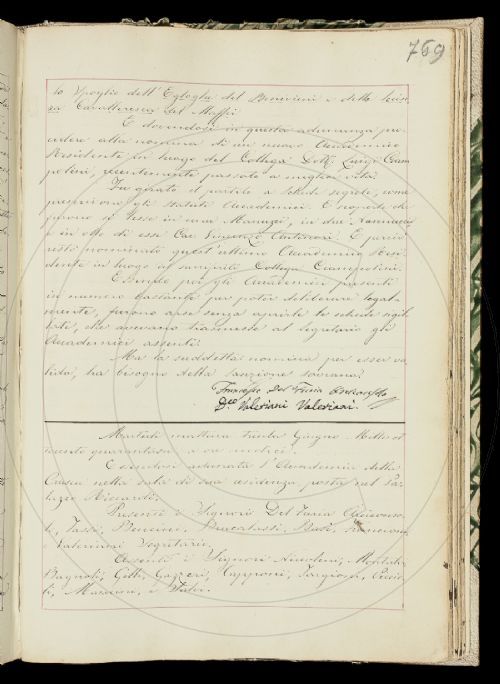 759
lo Spoglio dell'Egloghe del Benivieni e della Scien-
za Cavalleresca del Maffei.
E dovendosi in questa adunanza pro-
cedere alla nomina di un nuovo Accademico
Residente in luogo del Collega Dott. Luigi Ciam-
politini, recentemente passato a miglior vita:
Fu girato il partito a schede segrete, come
prescrivono gli Statuti Accademici. E scoperte che
furono si lesse in una Manuzzi, in due Nannucci
e in otto di esse Cav. Vincenzo Antinori. E perciò
restò nominato quest'ultimo Accademico Resi-
dente in luogo del Collega Ciampolini.
Essendo poi gli Accademici presenti
in numero bastante per poter deliberare legal-
mente, furono arse senza aprirle le schede sigil-
late, che avevano trasmesse al Segretario gli
Accademici assenti.
Ma la suddetta nomina per esser va-
lida, ha bisogno della sanzione sovrana.
Francesco Del Furia Arciconsolo
Valeriani Valeriani
Martedì mattina trenta Giugno Mille ot-
tocento quarantasei a ore undici.
Essendosi adunata l'Accademia della
Crusca nella sala di sua residenza posta nel Pa-
lazzo Riccardi.
Presenti i Signori Del Furia Arciconso-
lo, Tassi, Bencini, Brucalassi, Busi, Franceschi
e Valeriani Segretario.
Assenti i Signori Niccolini, Montalvi,
Bagnoli, Gelli, Gazzeri, Capponi, Targioni,
Manuzzi, e